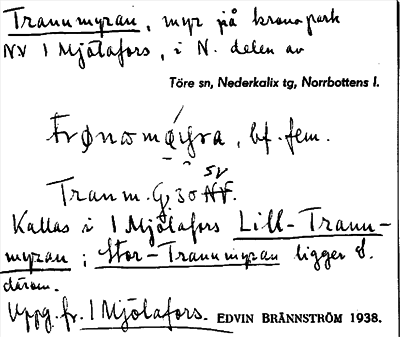 Trannmyran, myr på kronopark
NV I Mjölafors, i N. delen av
Töre sn, Nederkalix tg, Norrbottens l.
bf. fem.
SV
Tranm. G. 30 NV.
Kallas i I Mjölafors Lill-Trann-
myran; Stor-Trannmyran ligger S.
därom.
Uppg. fr. I Mjölafors. EDVIN BRÄNNSTRÖM 1938.